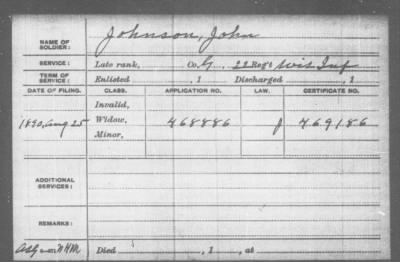 NAME OF SOLDIER: Johnson, John
SERVICE: Late rank, Co. G 22 Reg't Wis Inf
TERM OF SERVICE: Enlisted , 1 Discharged , 1
DATE OF FILING. CLASS. APPLICATION NO. LAW. CERTIFICATE NO.
Invalid,
1890, Aug 25 Widow, 468886 469186
Minor,
ADDITIONAL SERVICES:
REMARKS:
Died , 1 , at